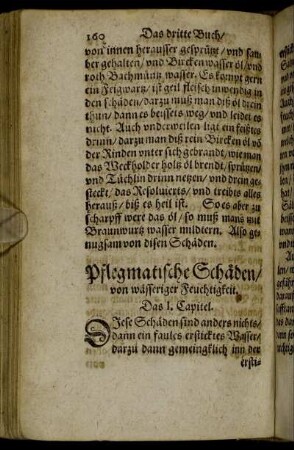 160 Das dritte Buch/
von innen herausser gesprützt/ vnd sau
ber gehalten/ vnd Bircken wasser öl/ vnd
roch Bachmüntz wasser. Es kompt gern
ein Feigwartz/ ist geil fleisch inwendig in
den schäden/ darzu muß man diß öl drein
thun/ dann es beissets weg/ vnd leidet es
nicht. Auch vnderweilen ligt ein feißtes
drinn/ darzu man diß rein Bircken öl vō
der Rinden vnter sich gebrandt, wie man
das Weckholder holtz öl brendt, sprützen/
vnd Tüchlin drinn netzen/ vnd drein ge-
steckt/ das Resoluierts/ vnd treibts alles
herauß/ biß es heil ist. So es aber zu
scharpff were das öl/ so muß mans mit
Braunwurtz wasser mildtern. Also ge-
nugsam von disen Schäden.
Pflegmatische Schäden/
von wässeriger Feuchtigkeit.
Das I. Capitel.
DIese Schäden sind anders nichts/
dann ein faules ersticktes Wasser/
darzu dann gemeingklich inn der
ersti-